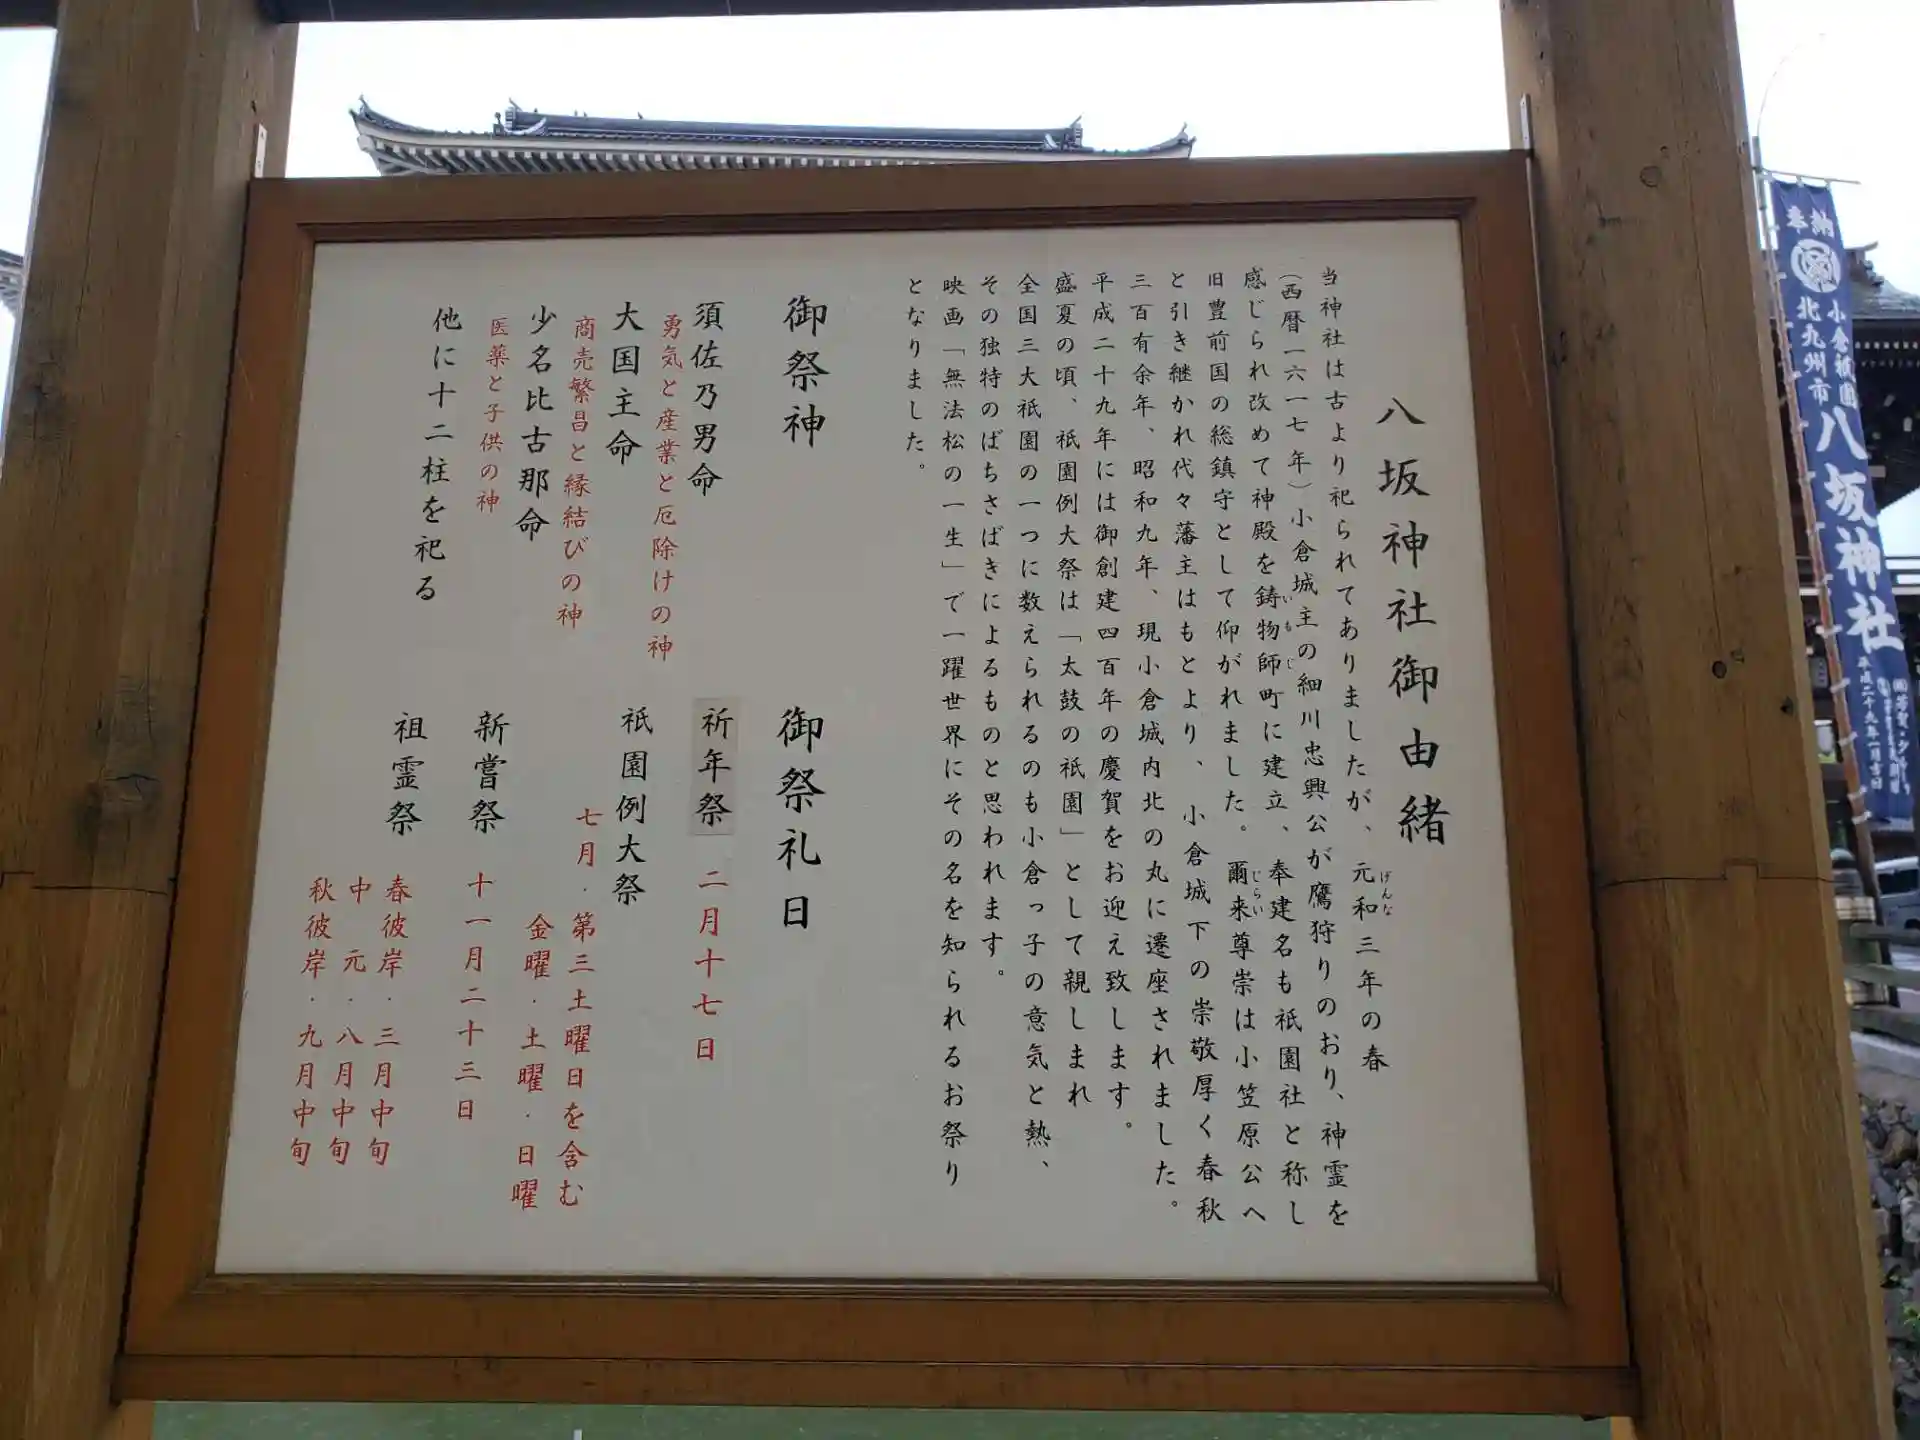 八坂神社御由緒
当神社は古より祀られてありましたが、元和三年の春
げんな
(西暦一六一七年)小倉城主の細川忠興公が鷹狩りのおり、神霊を
感じられ改めて神殿を鋳物師町に建立、奉建名も祇園社と称し
いもじ
旧豊前国の総鎮守として仰がれました。爾来尊崇は小笠原公へ
じらい
と引き継かれ代々藩主はもとより、小倉城下の崇敬厚く春秋
三百有余年、昭和九年、現小倉城内北の丸に遷座されました。
平成二十九年には御創建四百年の慶賀をお迎え致します。
盛夏の頃、祇園例大祭は「太鼓の祇園」として親しまれ
全国三大祇園の一つに数えられるのも小倉っ子の意気と熱、
その独特のばちさばきによるものと思われます。
映画「無法松の一生」で一躍世界にその名を知られるお祭り
となりました。
御祭神
須佐乃男命
勇気と産業と厄除けの神
大国主命
商売繁昌と縁結びの神
少名比古那命
医薬と子供の神
他に十二柱を祀る
御祭礼日
祈年祭 二月十七日
祇園例大祭
七月・第三土曜日を含む
金曜・土曜・日曜
新嘗祭 十一月二十三日
祖霊祭 春彼岸・三月中旬
中元・八月中旬
秋彼岸・九月中旬
奉納
小倉祇園
北九州市
八坂神社
平成二十九年一月吉日